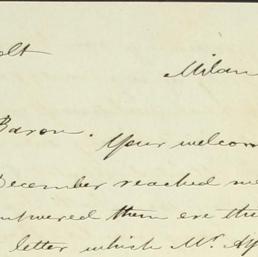 Milan
Baron.
Your welcom
December reached me
answered them ere the
letter which Mr. Ap